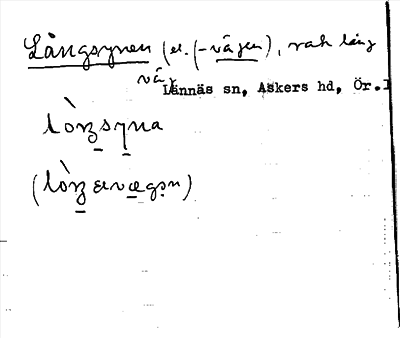 Långsynen (el. (-vägen), rak lång
väg
Lännäs sn, Askers hd, Ör.l
lòŋsyna
(lòŋ ervægən)